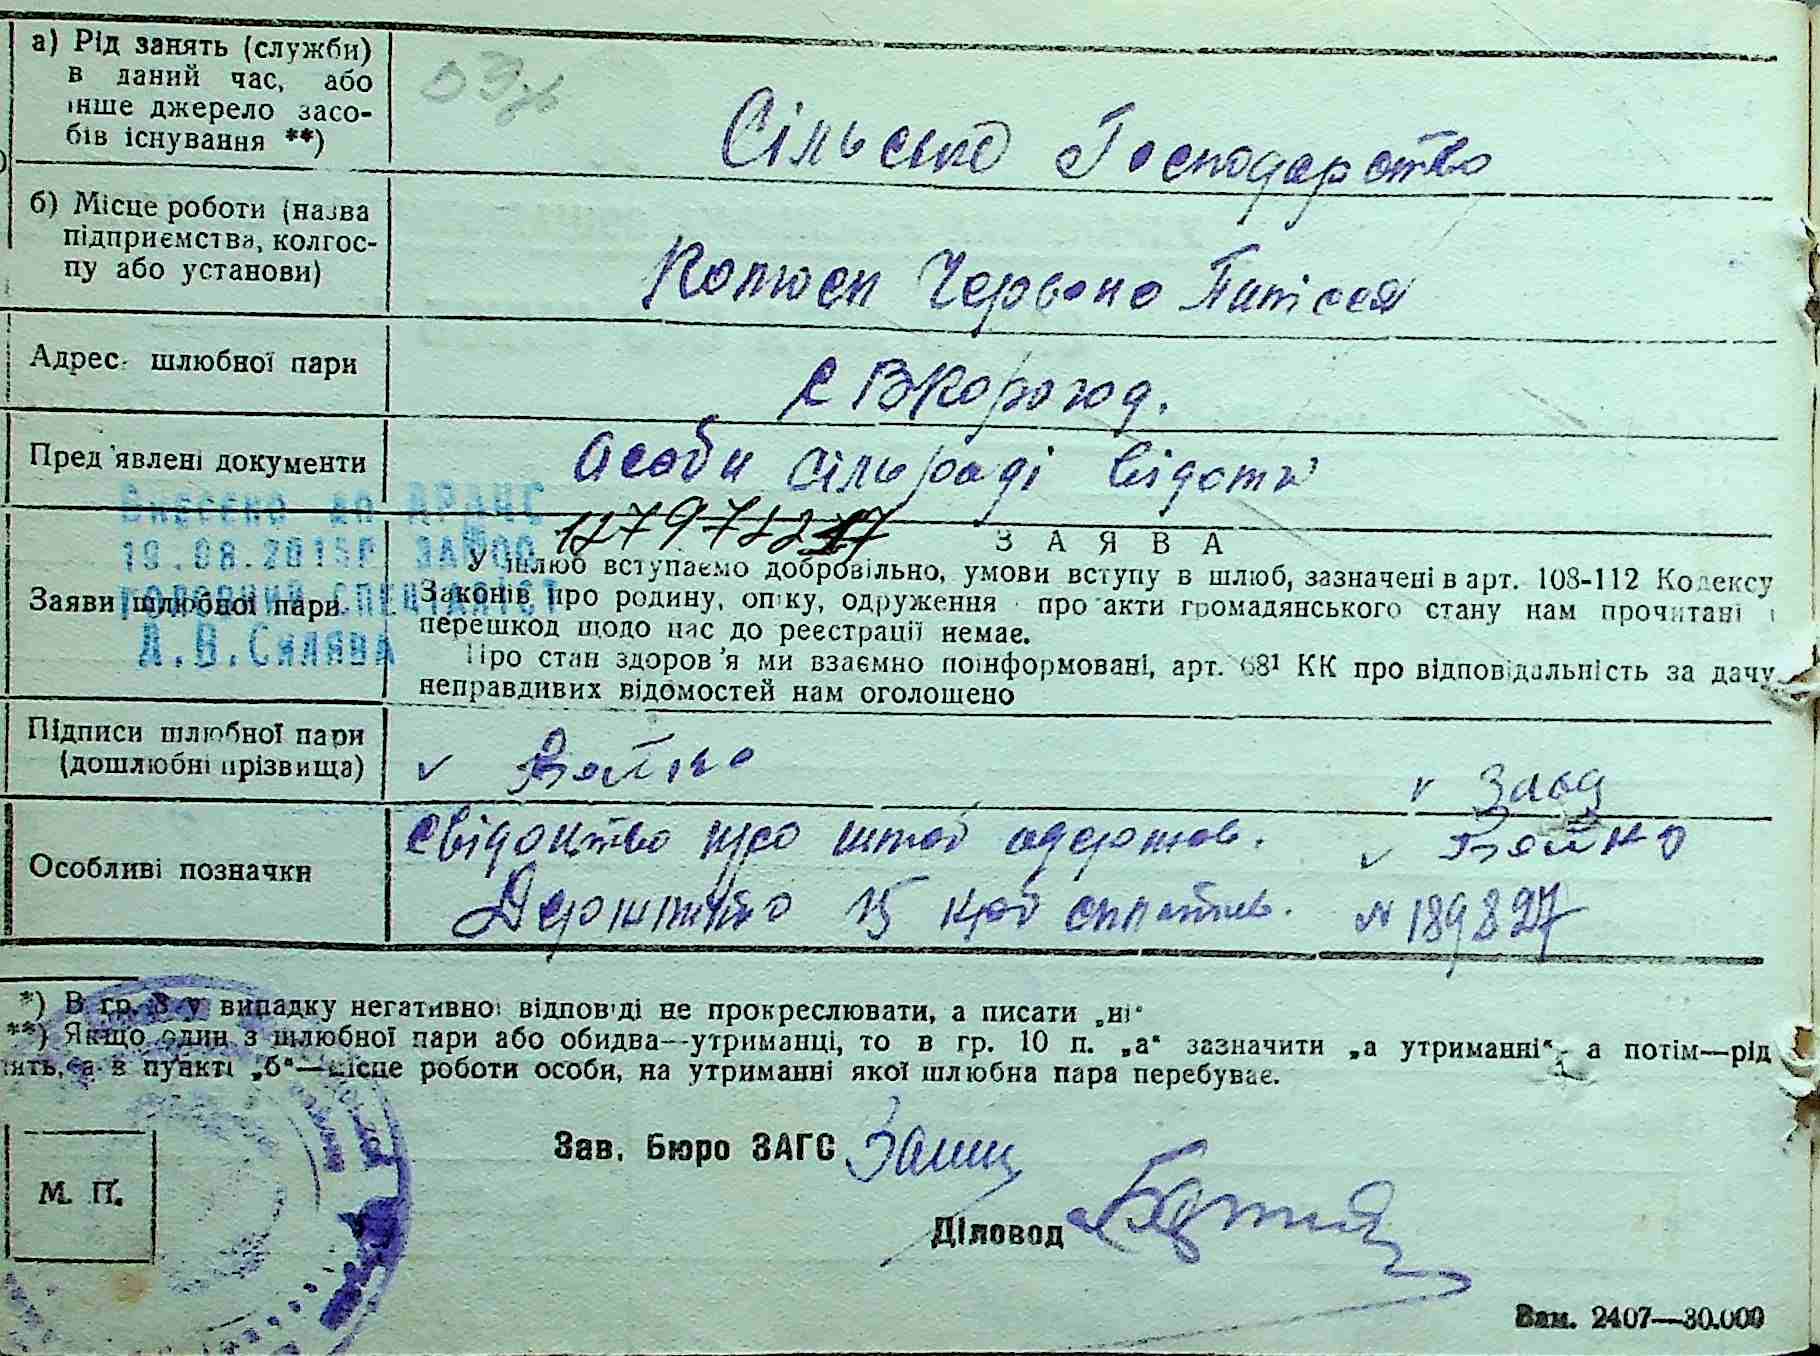 а) Рід занять (служби)
в даний час, або
інше джерело засо-
бів існування **)
Сільське Господарство
б) Місце роботи (назва
підприємства, колгос-
пу або установи)
Колгосп Червоне Полісся
Адрес шлюбної пари
с Вкорогод.
Пред'явлені документи
особи сільраді відоми
Внесено до ДРАЦС
19.08.2015р
головний спеціаліст
А.В.Силява
ЗАЯВА
Заяви шлюбної пари
У шлюб вступаємо добровільно, умови вступу в шлюб, зазначені в арт. 108-112 Кодексу
Законів про родину, опіку, одруження про акти громадянського стану нам прочитані і
перешкод щодо нас до реєстрації немає.
Про стан здоров'я ми взаємно поінформовані, арт. 68¹ КК про відповідальність за дачу
неправдивих відомостей нам оголошено
Підписи шлюбної пари
(дошлюбні прізвища)
Бойко
Особливі позначки
Свідоцтво про шлюб одержав. Бойко
Держмито 15 крб сплатив. № 189827
*) В гр. 8 у випадку негативної відповіді не прокреслювати, а писати „ні"
**) Якщо один з шлюбної пари або обидва—утриманці, то в гр. 10 п. „а" зазначити „а утриманні", а потім—рід
нять, а в пункті „б"—місце роботи особи, на утриманні якої шлюбна пара перебуває.
Зав. Бюро ЗАГС
М. П.
Діловод
Зам. 2407—30.000